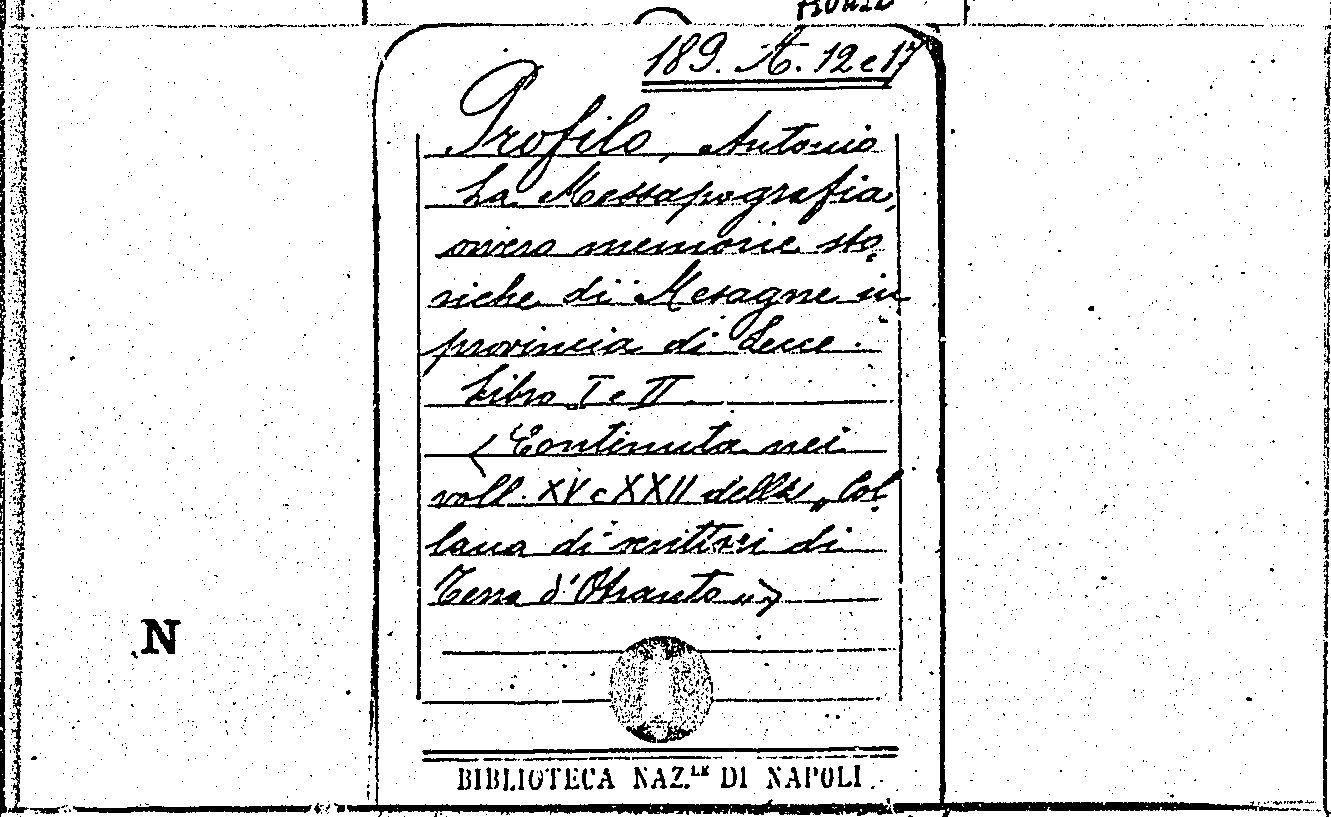 189. A. 12 e 17
Profilo, Antonio
La Messapografia,
ovvero memorie sto-
riche di Mesagne in
provincia di Lecce.
Libro I e II.
< Contenuta nei
voll. XV e XXII della „ Col-
lana di scrittori di
Terra d'Otranto „>
N
BIBLIOTECA NAZ.LE DI NAPOLI.